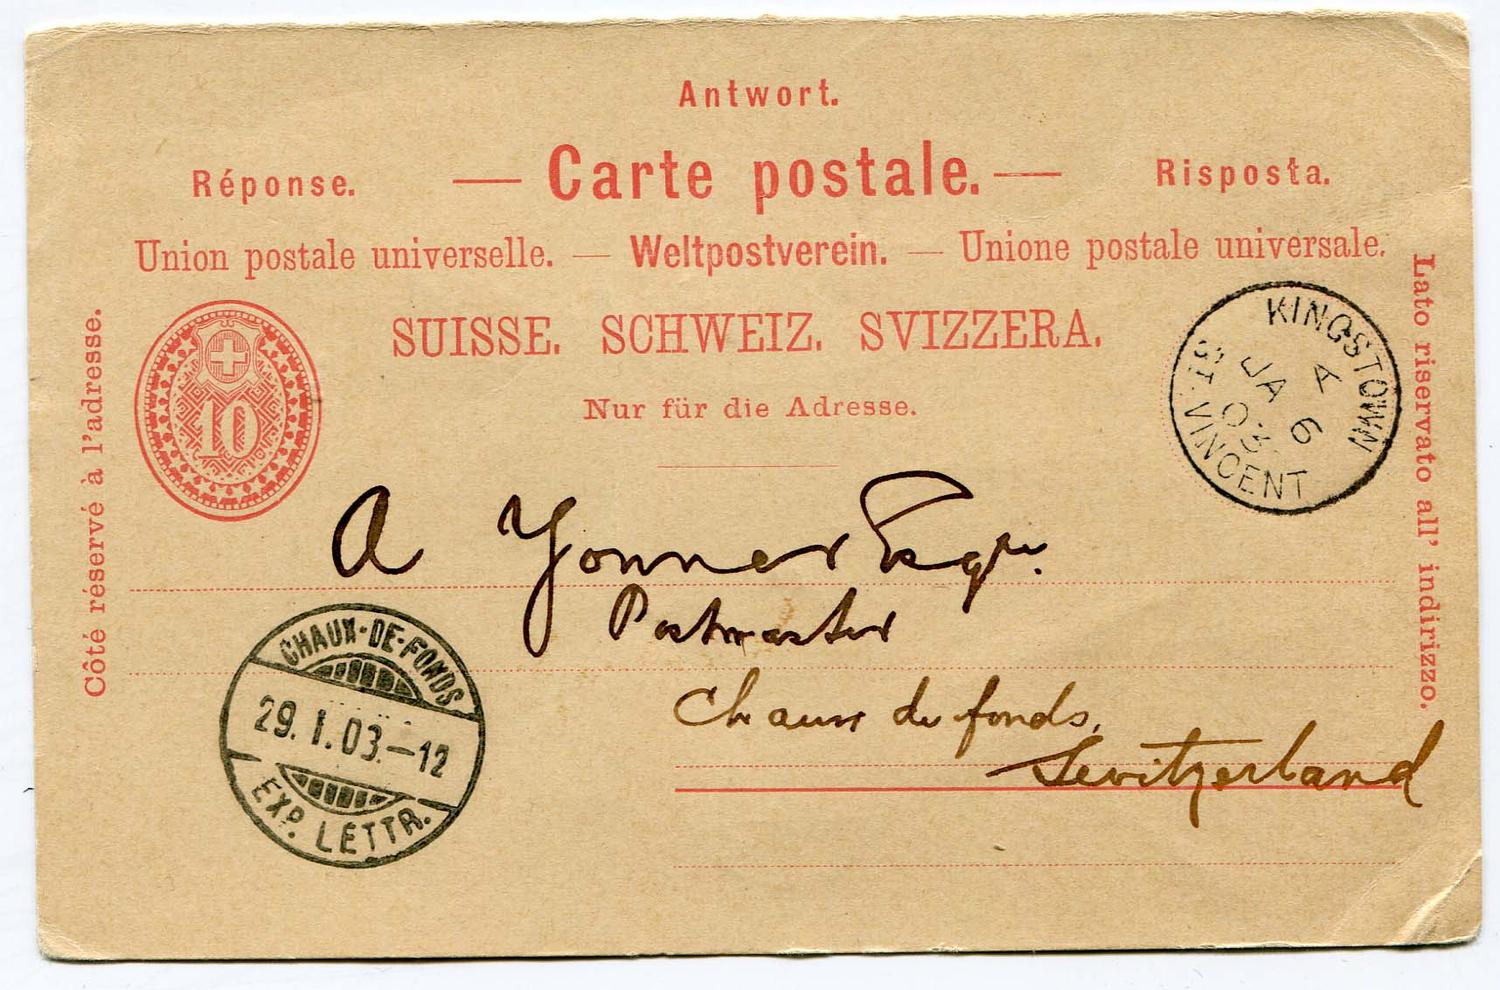 Antwort.
Réponse. — Carte postale. — Risposta.
Union postale universelle. — Weltpostverein. — Unione postale universale.
SUISSE. SCHWEIZ. SVIZZERA.
Nur für die Adresse.
Côté réservé à l'adresse.
Lato riservato all' indirizzo.
10
KINGSTOWN
A
JA 6
03
ST. VINCENT
A Yonner Esqre.
Postmaster
Chaux de fonds,
Switzerland
CHAUX-DE-FONDS
29. I. 03.–12
EXP. LETTR.